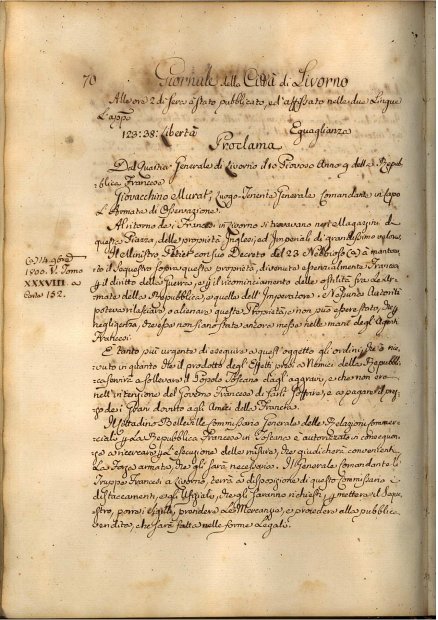 70 Giornale della Città di Livorno
Alle ore 2 di sera è stato pubblicato, ed affissato nelle due Lingue
L'app.o
123:38: Libertà Eguaglianza
Proclama
Dal Quartier Generale di Livorno il 10 Piovoso Anno 9 della Repub
blica Francese
Giovacchino Murat, Luogo-Tenente Generale Comandante in Capo
L'Armata di Osservazione.
Al ritorno dei Francesi in Livorno si trovavano nei Magazzini di
questa Piazza delle proprietà Inglesi, ed Imperiali di grandissimo valore.
Il Ministro Petiet con suo Decreto del 23 Nebbioso (a) à mantenu
to il Sequestro sopra queste proprietà, divenute essenzialmente Francesi
p il diritto della Guerra, e p il ricominciamento delle ostilità fra le Ar
mate della Repubblica, e quelle dell'Imperatore. Nessuna Autorità
poteva rilasciare o alienare queste Proprietà, e non può essere stato, che p
negligenza, che esse non siano state ancora messe nelle mani degl'Agenti
Francesi.
(a)
1800. V. Tomo
XXXVIII a
Carte 152.
È tanto più urgente di eseguire a quest'oggetto gli ordini, che ò rice
vuto in quanto che il prodotto degl'Effetti presi a Nemici della Repubbli
ca servirà a sollevare il Popolo Toscano dagli aggravi, e che non era
nell'intenzione del Governo Francese di farli soffrire, e a pagare il prez
zo dei Grani dovuto agli Amici della Francia.
Il Cittadino Belleville Commissario Generale delle Relazioni Commer
ciali p la Repubblica Francese in Toscana è autorizzato in conseguen
za a ricercare p l'esecuzione delle misure, che giudicherà convenienti
La forza armata, che gli sarà necessaria. Il Generale Comandante le
Truppe Francesi a Livorno, terrà a disposizione di questo Commissario i
distaccamenti, e gli Uffiziali, che gli saranno richiesti p mettere il Seque
stro, porre i sigilli, prendere Le Mercanzie, e procedere alla pubblica
vendita, che sarà fatta nelle forme Legali.